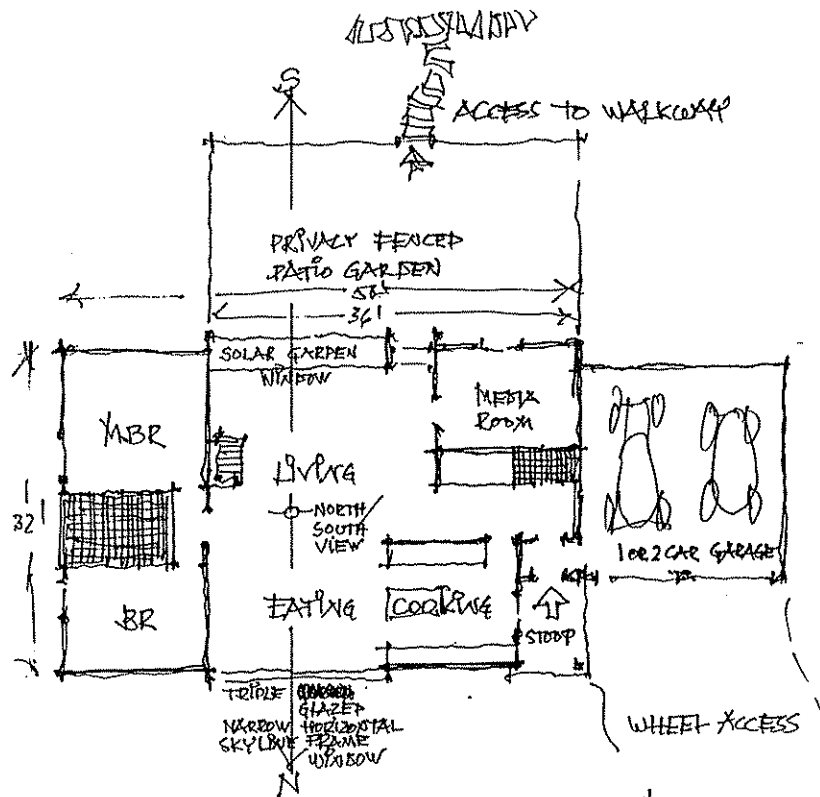 S
ACCESS TO WALKWAY
PRIVACY FENCED
PATIO GARDEN
36'
SOLAR GARDEN
WINDOW
MBR
MEDIA
ROOM
LIVING
NORTH/
SOUTH
VIEW
32'
1 OR 2 CAR GARAGE
BR
EATING
COOKING
STOOP
TRIPLE
GLAZED
NARROW HORIZONTAL
SKYLINE FRAME
WINDOW
WHEEL ACCESS
N